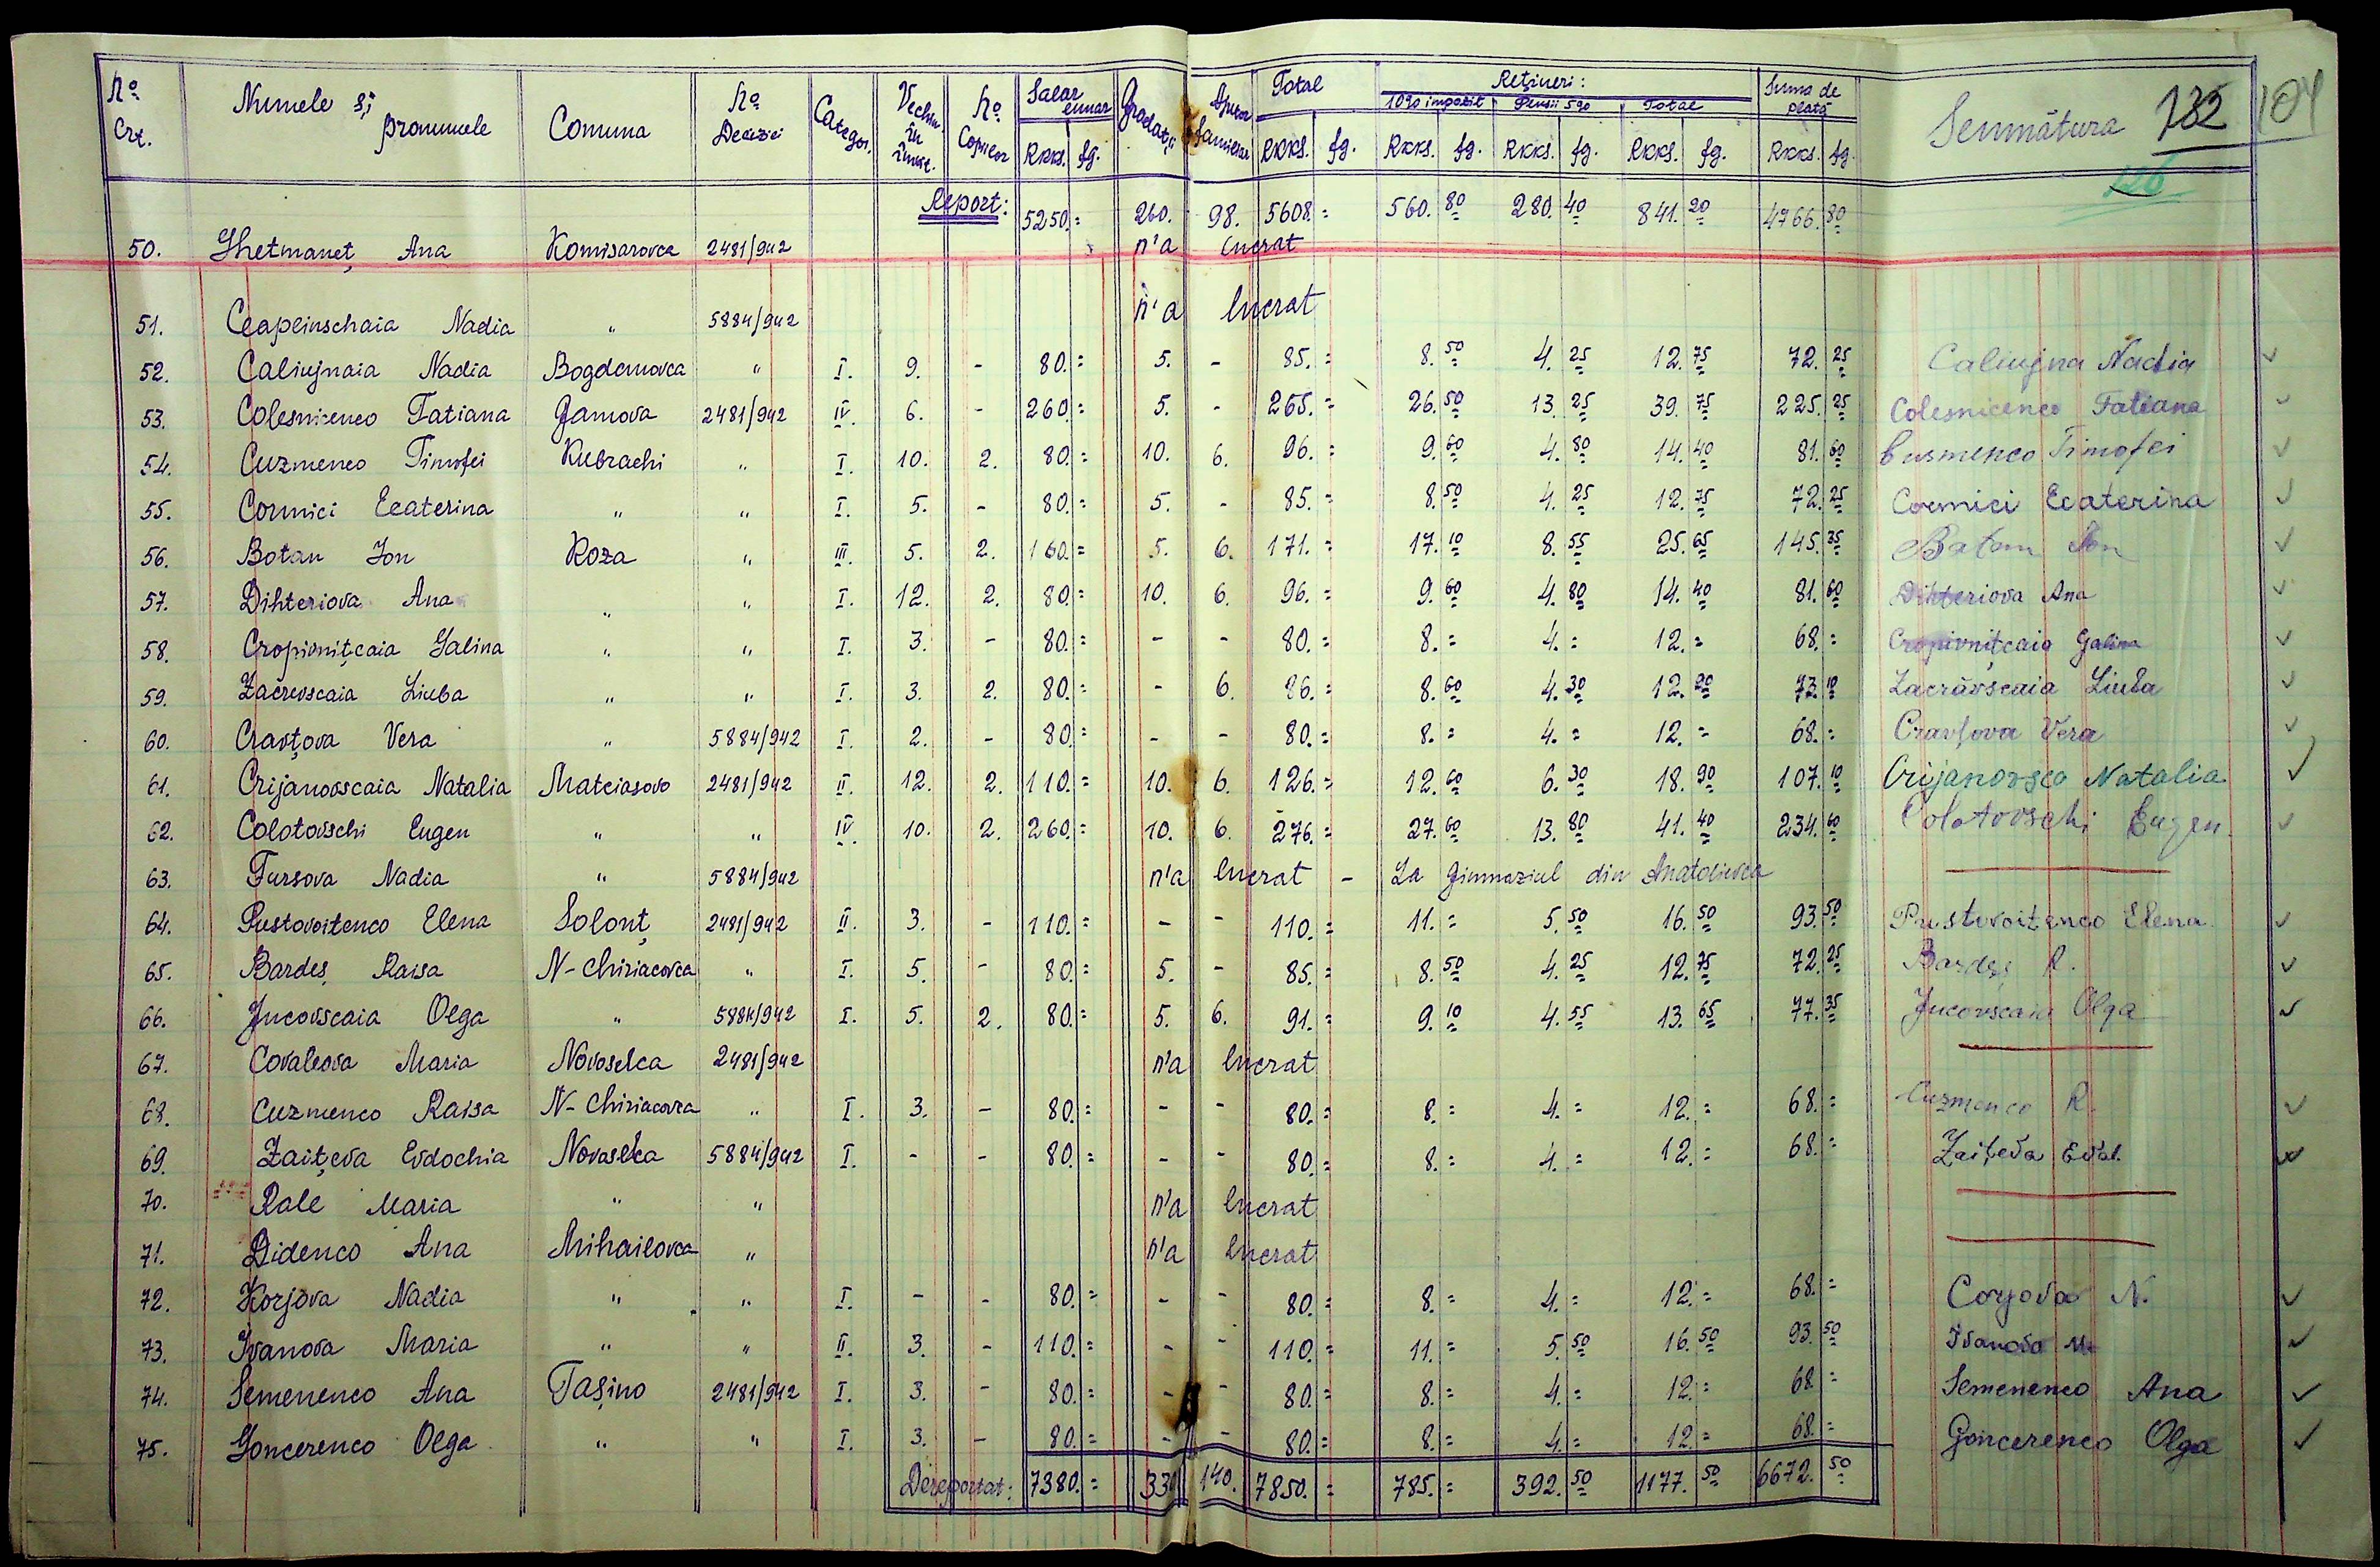 No. Crt. Numele și pronumele Comuna No. Decizei Categor. Vechim. în înväț. No. Copiilor Salar lunar RKKS. fg. Gradații Ajutor familiar Total RKKS. fg. Rețineri: 10% impozit RKKS. fg. Pensii 5% RKKS. fg. Total RKKS. fg. Suma de plată RKKS. fg. Semnătura 132 104
126
Report: 5250.= 260. 98. 5608.= 560.80 280.40 841.20 4766.80
50. Ghetmaneț Ana Komisarovca 2481/942 n'a lucrat
51. Ceaplinschaia Nadia " 5884/942 n'a lucrat
52. Caliujnaia Nadia Bogdanovca " I. 9. - 80.= 5. - 85.= 8.50 4.25 12.75 72.25 Caliujna Nadia
53. Colesnicenco Tatiana Gamova 2481/942 IV. 6. - 260.= 5. - 265.= 26.50 13.25 39.75 225.25 Colesnicenco Tatiana
54. Cuzmenco Timofei Kubrachi " I. 10. 2. 80.= 10. 6. 96.= 9.60 4.80 14.40 81.60 Cusmenco Timofei
55. Cormici Ecaterina " " I. 5. - 80.= 5. - 85.= 8.50 4.25 12.75 72.25 Cormici Ecaterina
56. Botan Ion Roza " III. 5. 2. 160.= 5. 6. 171.= 17.10 8.55 25.65 145.35 Batan Ion
57. Dihteriova Ana " " I. 12. 2. 80.= 10. 6. 96.= 9.60 4.80 14.40 81.60 Dihteriova Ana
58. Cropivnițcaia Galina " " I. 3. - 80.= - - 80.= 8.= 4.= 12.= 68.= Cropivnițcaia Galina
59. Zacrevscaia Liuba " " I. 3. 2. 80.= - 6. 86.= 8.60 4.30 12.90 73.10 Zacrăvscaia Liuba
60. Cravțova Vera " 5884/942 I. 2. - 80.= - - 80.= 8.= 4.= 12.= 68.= Cravțova Vera
61. Crijanovscaia Natalia Matciasovo 2481/942 II. 12. 2. 110.= 10. 6. 126.= 12.60 6.30 18.90 107.10 Crijanovsca Natalia
62. Colotovschi Eugen " " IV. 10. 2. 260.= 10. 6. 276.= 27.60 13.80 41.40 234.60 Colotovschi Eugen.
63. Fursova Nadia " 5884/942 n'a lucrat - La Gimnaziul din Anatolievca
64. Pustovoitenco Elena Solonț 2481/942 II. 3. - 110.= - - 110.= 11.= 5.50 16.50 93.50 Pustovoitenco Elena.
65. Bardeș Raisa N-Chiriacovca " I. 5. - 80.= 5. - 85.= 8.50 4.25 12.75 72.25 Bardeș R.
66. Jucovscaia Olga " 5884/942 I. 5. 2. 80.= 5. 6. 91.= 9.10 4.55 13.65 77.35 Jucovscaia Olga
67. Covaleova Maria Novoselca 2481/942 n'a lucrat
68. Cuzmenco Raisa N-Chiriacovca " I. 3. - 80.= - - 80.= 8.= 4.= 12.= 68.= Cuzmenco R.
69. Zaițeva Evdochia Novoselca 5884/942 I. - - 80.= - - 80.= 8.= 4.= 12.= 68.= Zaițeva Evd.
70. Rale Maria " " n'a lucrat
71. Didenco Ana Mihailovca " n'a lucrat
72. Korjova Nadia " " I. - - 80.= - - 80.= 8.= 4.= 12.= 68.= Corjova N.
73. Ivanova Maria " " II. 3. - 110.= - - 110.= 11.= 5.50 16.50 93.50 Ivanova M.
74. Semenenco Ana Tașino 2481/942 I. 3. - 80.= - - 80.= 8.= 4.= 12.= 68.= Semenenco Ana
75. Goncerenco Olga " " I. 3. - 80.= - - 80.= 8.= 4.= 12.= 68.= Goncerenco Olga
Dereportat: 7380.= 330 140. 7850.= 785.= 392.50 1177.50 6672.50